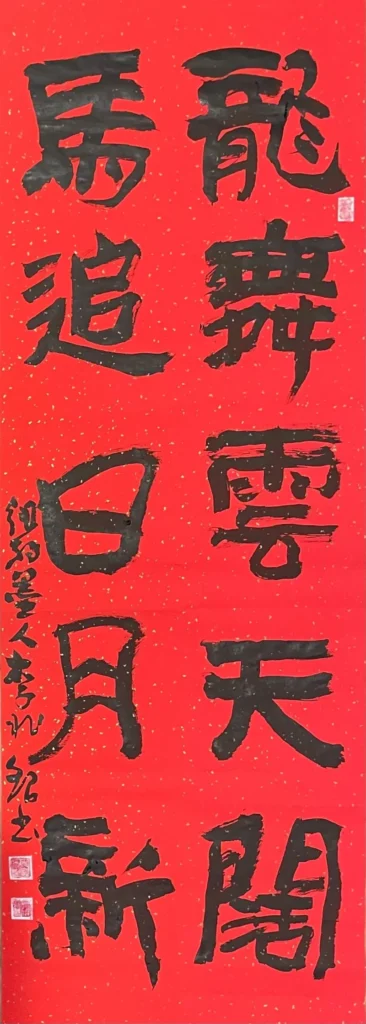 龍舞雲天闊
馬追日月新
墨人李北
書